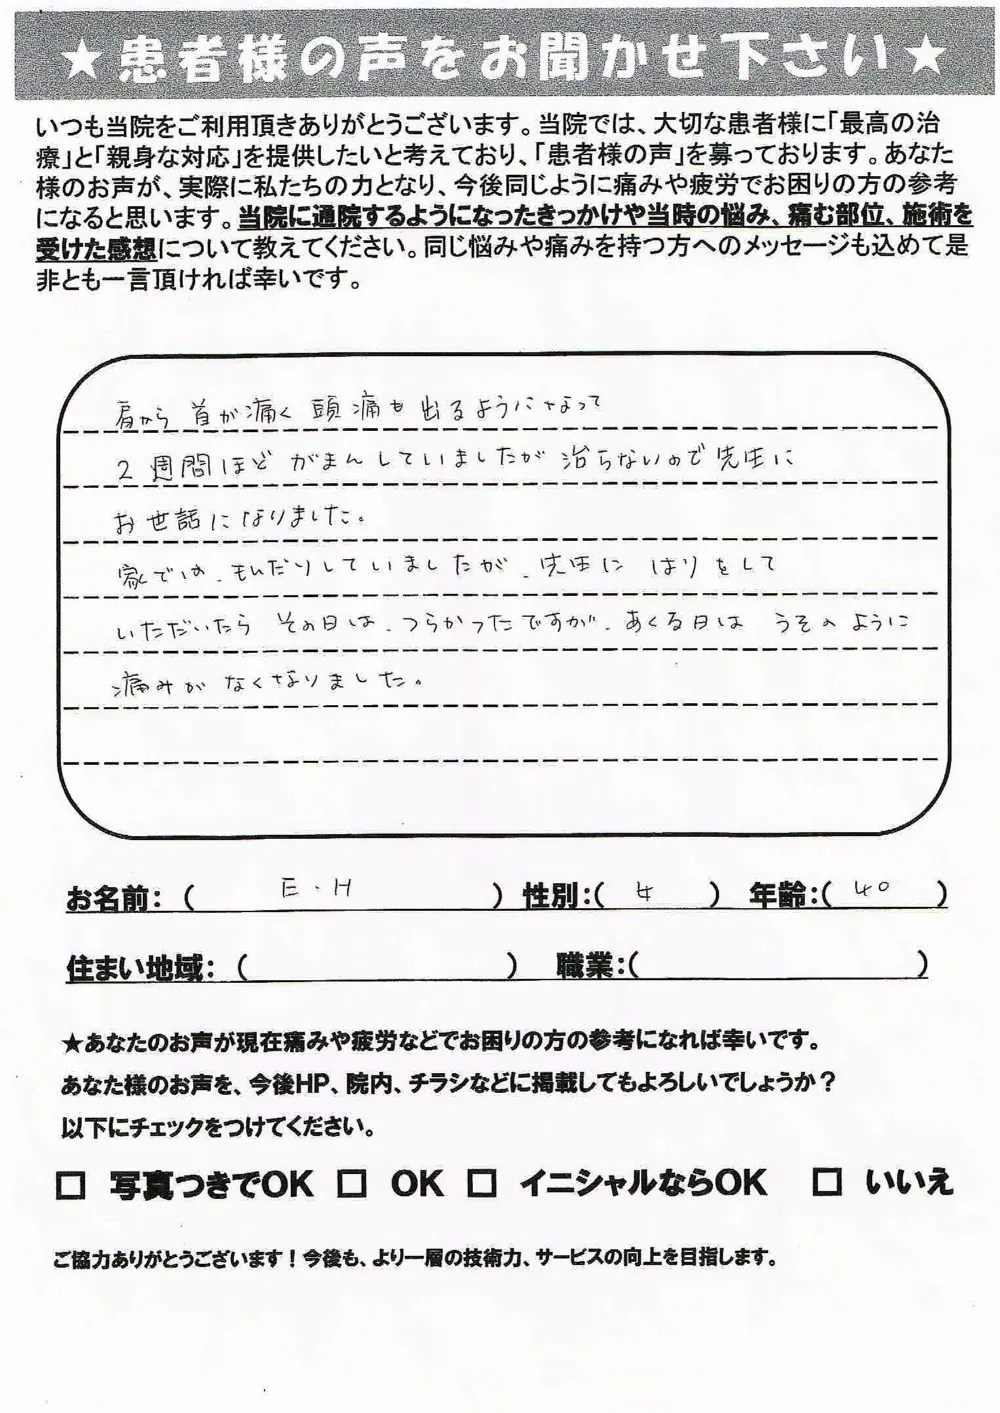 ★患者様の声をお聞かせ下さい★
いつも当院をご利用頂きありがとうございます。当院では、大切な患者様に「最高の治
療」と「親身な対応」を提供したいと考えており、「患者様の声」を募っております。あなた
様のお声が、実際に私たちの力となり、今後同じように痛みや疲労でお困りの方の参考
になると思います。当院に通院するようになったきっかけや当時の悩み、痛む部位、施術を
受けた感想について教えてください。同じ悩みや痛みを持つ方へのメッセージも込めて是
非とも一言頂ければ幸いです。
肩から 首が痛く 頭痛も 出るようになって
2週間ほど がまんしていましたが 治らないので 先生に
お世話になりました。
家では、もんだりしていましたが、先生に はりをして
いただいたら その日は、つらかったですが、あくる日は うそのように
痛みが なくなりました。
お名前:( E.H ) 性別:( 女 ) 年齢:( 40 )
住まい地域:( ) 職業:( )
★あなたのお声が現在痛みや疲労などでお困りの方の参考になれば幸いです。
あなた様のお声を、今後HP、院内、チラシなどに掲載してもよろしいでしょうか？
以下にチェックをつけてください。
□ 写真つきでOK □ OK □ イニシャルならOK □ いいえ
ご協力ありがとうございます！今後も、より一層の技術力、サービスの向上を目指します。